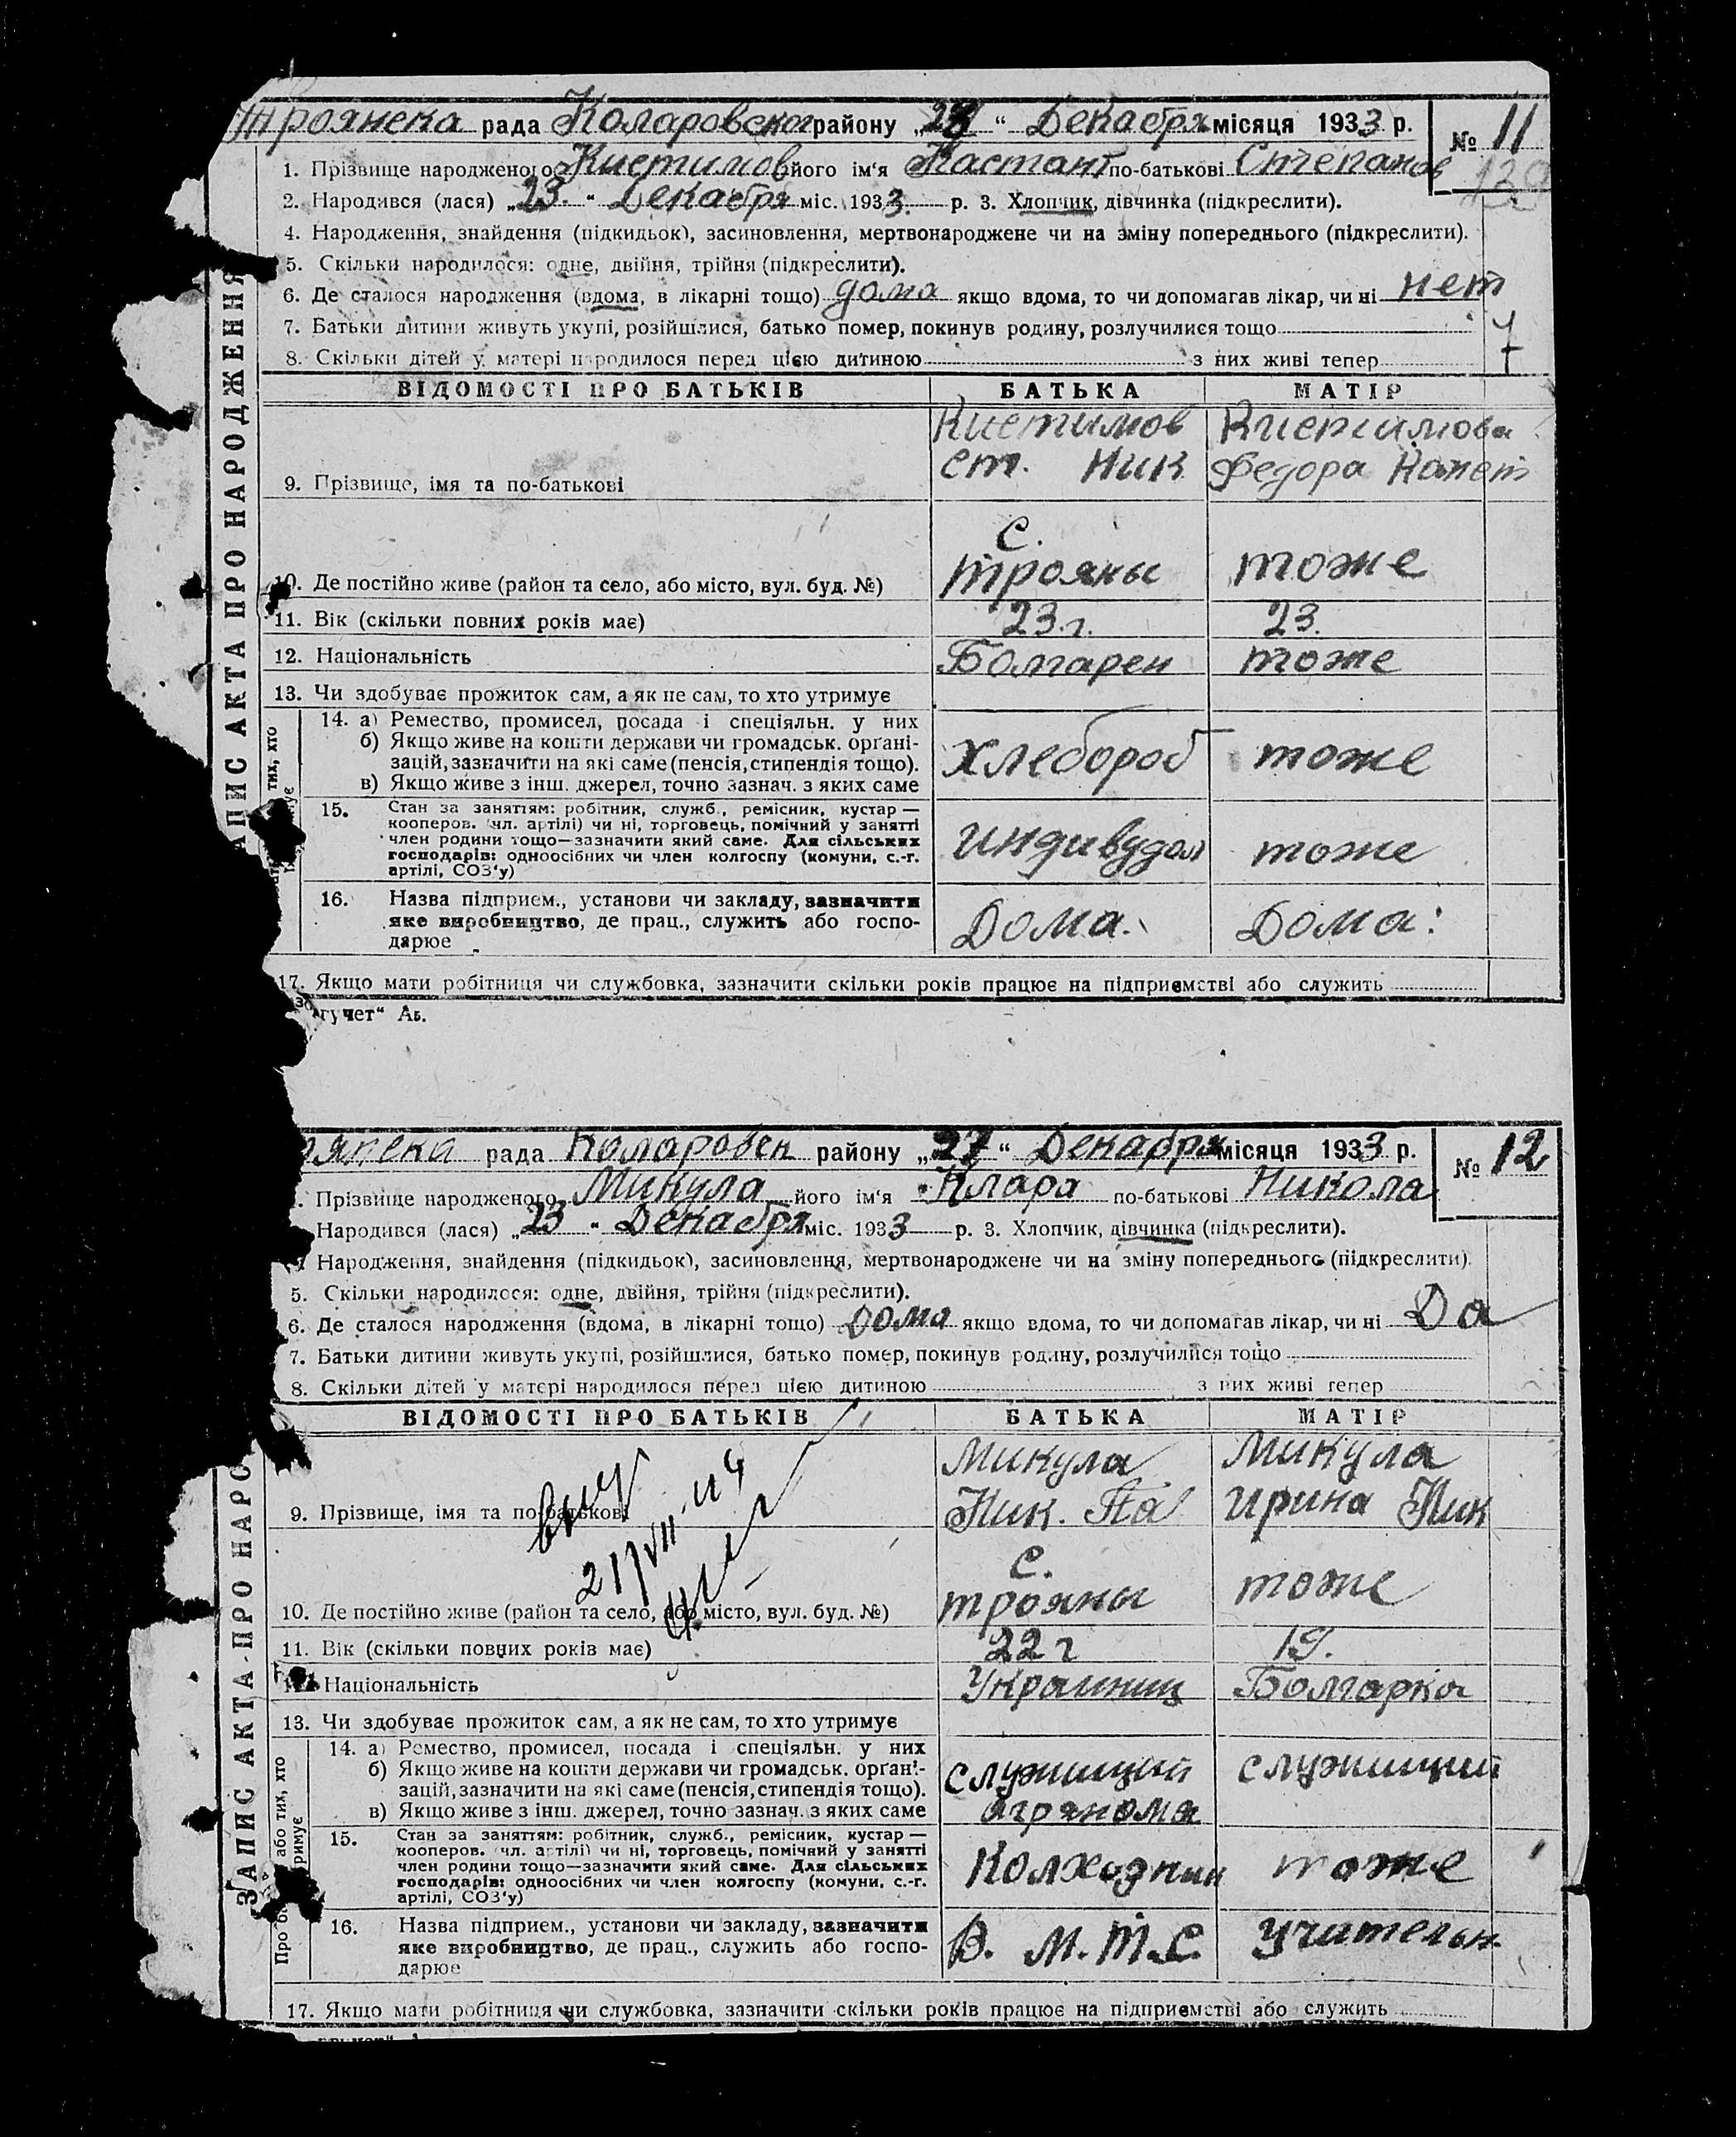 Троянска рада Коларовског району „28“ Декабря місяця 1933 р. № 11
1. Прізвище народженого Кистимов його ім'я Кастант по-батькові Степанов
2. Народився (лася) „23.“ Декабря міс. 1933. р. 3. Хлопчик, дівчинка (підкреслити).
4. Народження, знайдення (підкидьок), засиновлення, мертвонароджене чи на зміну попереднього (підкреслити).
5. Скільки народилося: одне, двійня, трійня (підкреслити).
6. Де сталося народження (вдома, в лікарні тощо) дома якщо вдома, то чи допомагав лікар, чи ні нет
7. Батьки дитини живуть укупі, розійшлися, батько помер, покинув родину, розлучилися тощо
8. Скільки дітей у матері народилося перед цією дитиною з них живі тепер
ВІДОМОСТІ ПРО БАТЬКІВ БАТЬКА МАТІР
Кистимов Кистимова
ст. Ник Федора
9. Прізвище, імя та по-батькові
с.
трояны тоже
10. Де постійно живе (район та село, або місто, вул. буд. №)
11. Вік (скільки повних років має) 23.г. 23.
12. Національність Болгарен тоже
13. Чи здобуває прожиток сам, а як не сам, то хто утримує
14. а) Ремество, промисел, посада і спеціяльн. у них
б) Якщо живе на кошти держави чи громадськ. орґані-
зацій, зазначити на які саме (пенсія, стипендія тощо).
в) Якщо живе з інш. джерел, точно зазнач. з яких саме
хлебороб тоже
15. Стан за заняттям: робітник, служб., ремісник, кустар —
кооперов. чл. артілі) чи ні, торговець, помічний у занятті
член родини тощо—зазначити який саме. Для сільських
господарів: одноосібних чи член колгоспу (комуни, с.-г.
артілі, СОЗ'у)
индивудал тоже
16. Назва підприєм., установи чи закладу, зазначити
яке виробництво, де прац., служить або госпо-
дарює
Дома. Дома:
17. Якщо мати робітниця чи службовка, зазначити скільки років працює на підприємстві або служить
гучет“
АПИС АКТА ПРО НАРОДЖЕННЯ
тих, хто
янска рада Коларовск району „27“ Декабря місяця 1933 р. № 12
Прізвище народженого Микула його ім'я Клара по-батькові Никола
Народився (лася) „23“ Декабря міс. 1933 р. 3. Хлопчик, дівчинка (підкреслити).
Народження, знайдення (підкидьок), засиновлення, мертвонароджене чи на зміну попереднього (підкреслити).
5. Скільки народилося: одне, двійня, трійня (підкреслити).
6. Де сталося народження (вдома, в лікарні тощо) дома якщо вдома, то чи допомагав лікар, чи ні Да
7. Батьки дитини живуть укупі, розійшлися, батько помер, покинув родину, розлучилися тощо
8. Скільки дітей у матері народилося перед цією дитиною з них живі тепер
ВІДОМОСТІ ПРО БАТЬКІВ БАТЬКА МАТІР
Микула Микула
Ник. Па Ирина Ник
9. Прізвище, імя та по-батькові
с.
трояны тоже
10. Де постійно живе (район та село, або місто, вул. буд. №)
11. Вік (скільки повних років має) 22 г 19.
Національність Украиниц Болгарка
13. Чи здобуває прожиток сам, а як не сам, то хто утримує
14. а) Ремество, промисел, посада і спеціяльн. у них
б) Якщо живе на кошти держави чи громадськ. орґані-
зацій, зазначити на які саме (пенсія, стипендія тощо).
в) Якщо живе з інш. джерел, точно зазнач. з яких саме
служищий служищий
агранома
15. Стан за заняттям: робітник, служб., ремісник, кустар —
кооперов. чл. артілі) чи ні, торговець, помічний у занятті
член родини тощо—зазначити який саме. Для сільських
господарів: одноосібних чи член колгоспу (комуни, с.-г.
артілі, СОЗ'у)
Колхозник тоже
16. Назва підприєм., установи чи закладу, зазначити
яке виробництво, де прац., служить або госпо-
дарює
В. М.Т.С. Учительн.
17. Якщо мати робітниця чи службовка, зазначити скільки років працює на підприємстві або служить
ЗАПИС АКТА ПРО НАРО
або тих, хто
римує